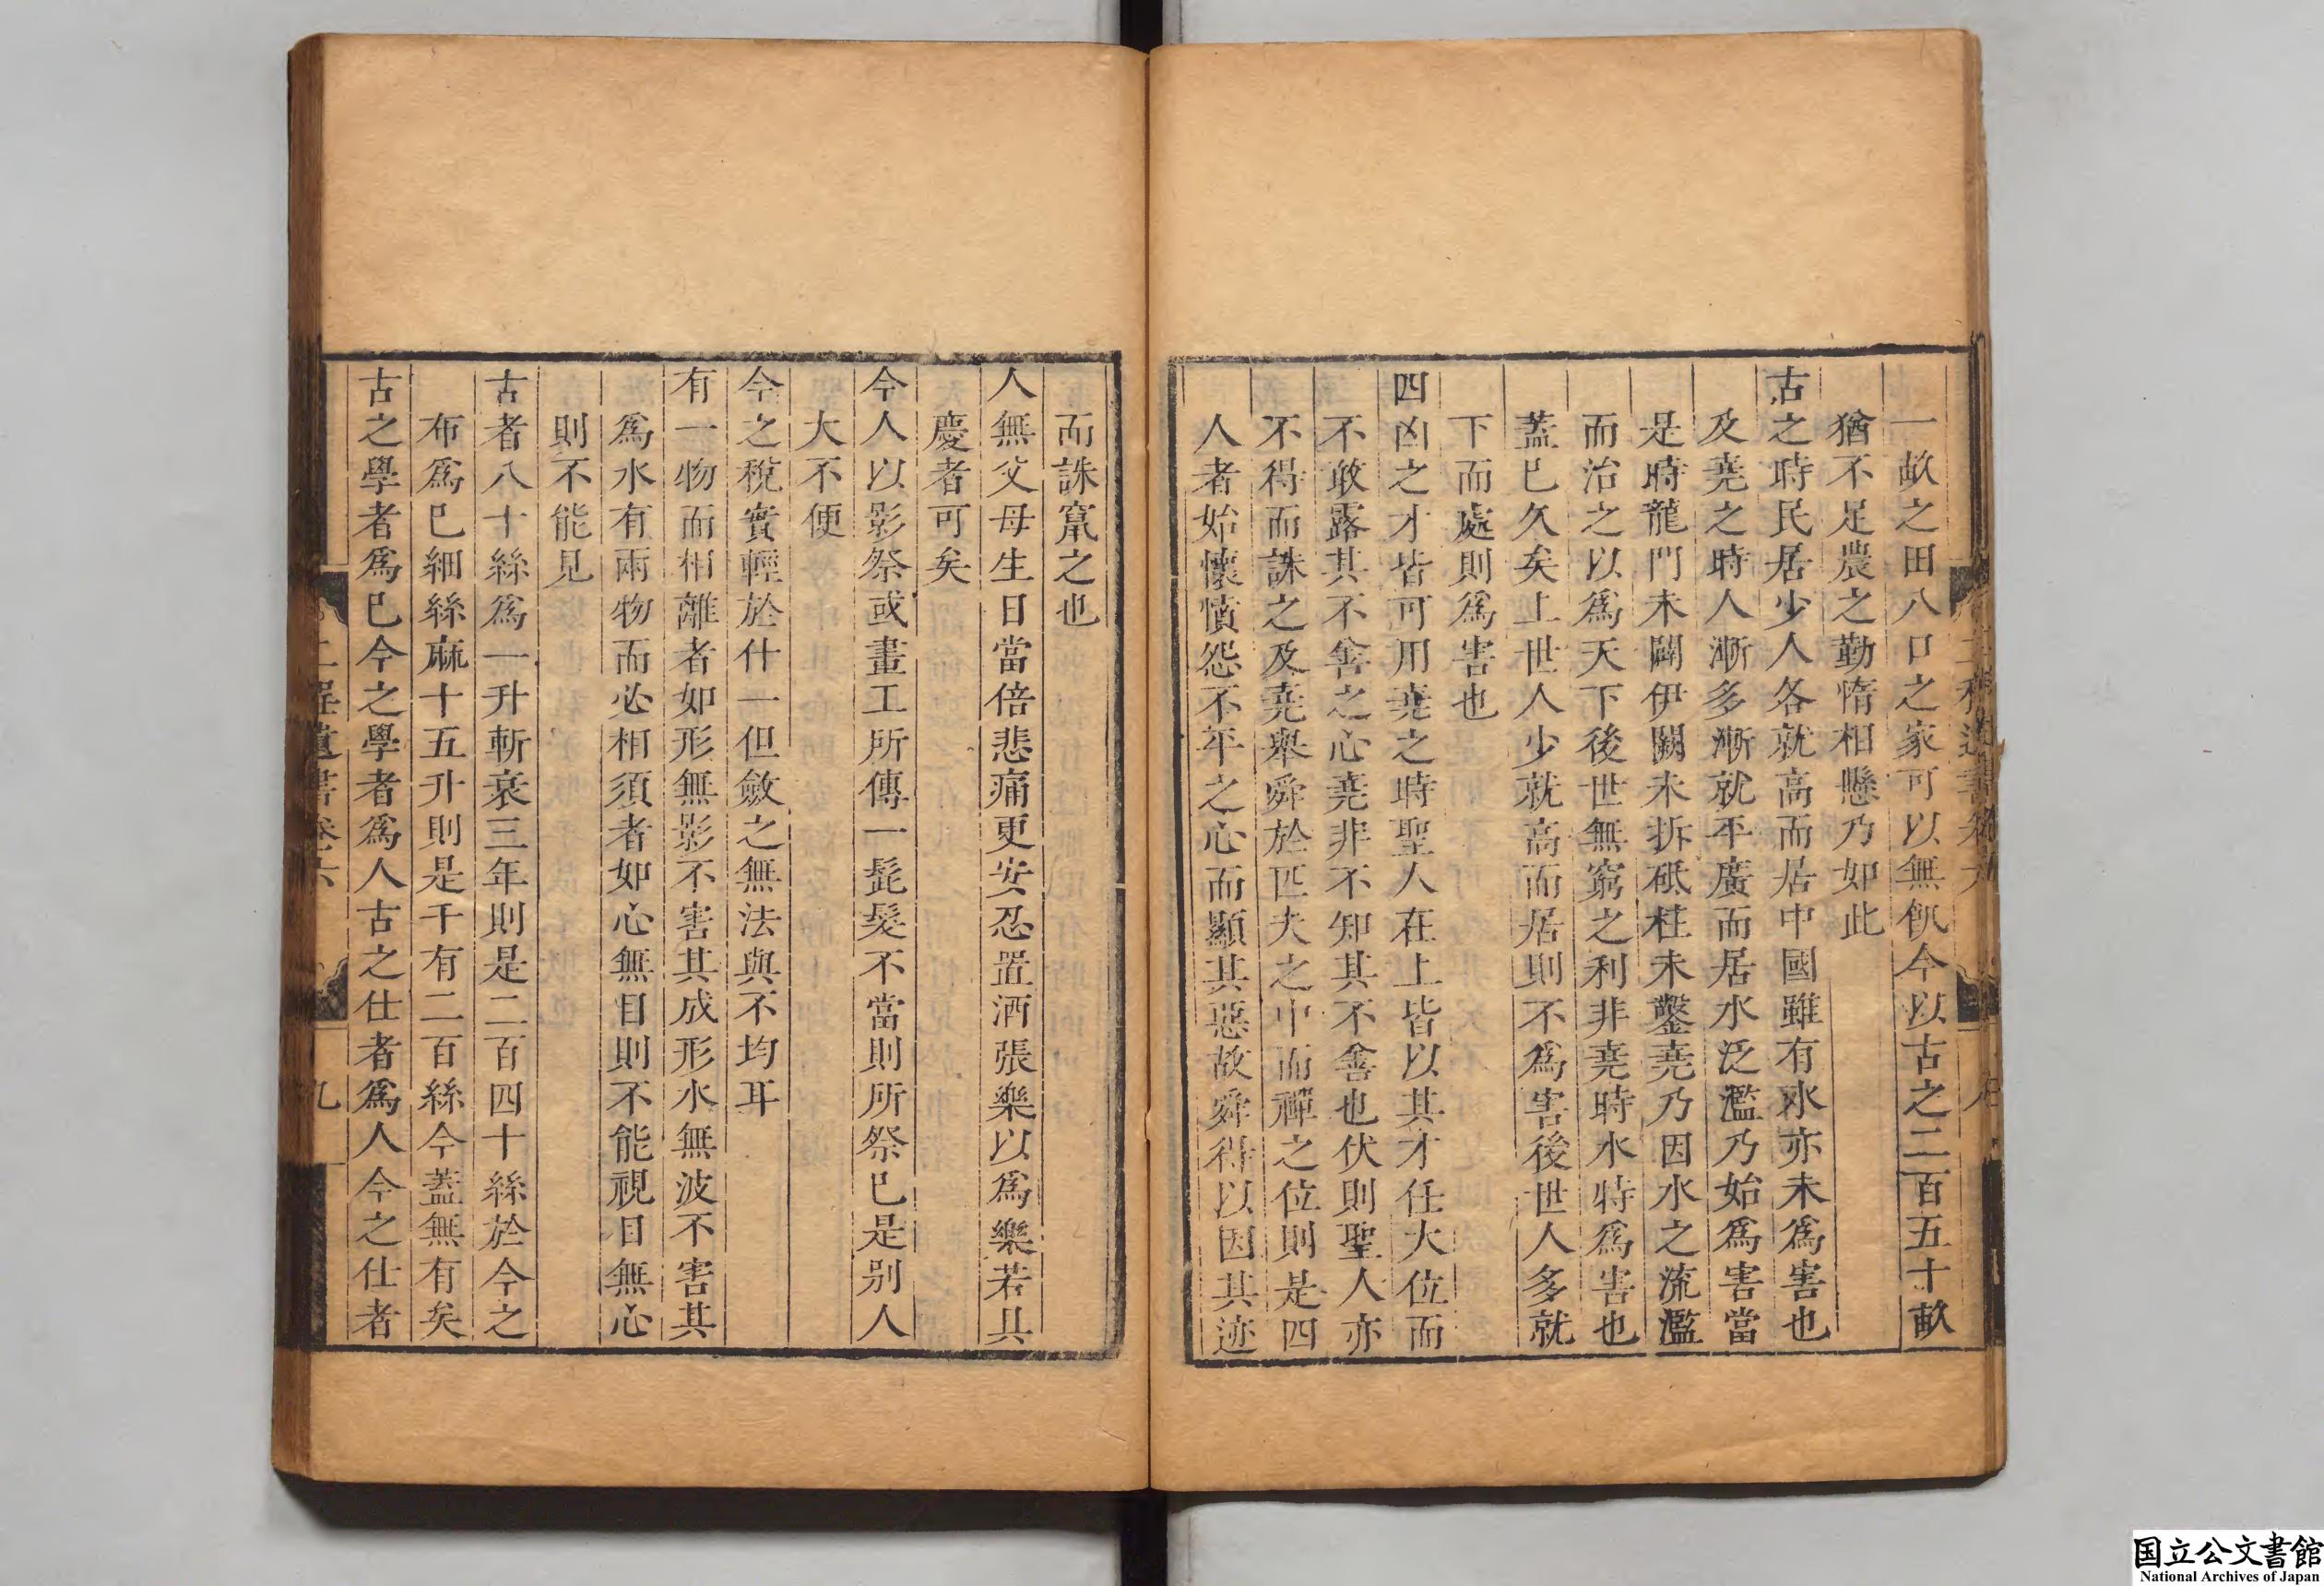 一畝之田八口之家可以無飢今以古之二百五十畝
猶不足農之勤惰相懸乃如此
古之時民居少人各就高而居中國雖有水亦未爲害也
及堯之時人漸多漸就平廣而居水泛濫乃始爲害當
是時龍門未闢伊闕未拆砥柱未鑿堯乃因水之流濫
而治之以爲天下後世無窮之利非堯時水特爲害也
蓋已久矣上世人少就高而居則不爲害後世人多就
下而處則爲害也
四凶之才皆可用堯之時聖人在上皆以其才任大位而
不敢露其不善之心堯非不知其不善也伏則聖人亦
不得而誅之及堯舉舜於匹夫之中而禪之位則是四
人者始懷憤怨不平之心而顯其惡故舜得以因其迹
而誅竄之也
人無父母生日當倍悲痛更安忍置酒張樂以爲樂若具
慶者可矣
今人以影祭或畫工所傳一髭髮不當則所祭已是別人
大不便
今之稅實輕於什一但斂之無法與不均耳
有一物而相離者如形無影不害其成形水無波不害其
爲水有兩物而必相須者如心無目則不能視目無心
則不能見
古者八十絲爲一升斬衰三年則是二百四十絲於今之
布爲已細絲麻十五升則是千有二百絲今蓋無有矣
古之學者爲己今之學者爲人古之仕者爲人今之仕者
二程遺書卷六
九
国立公文書館
National Archives of Japan